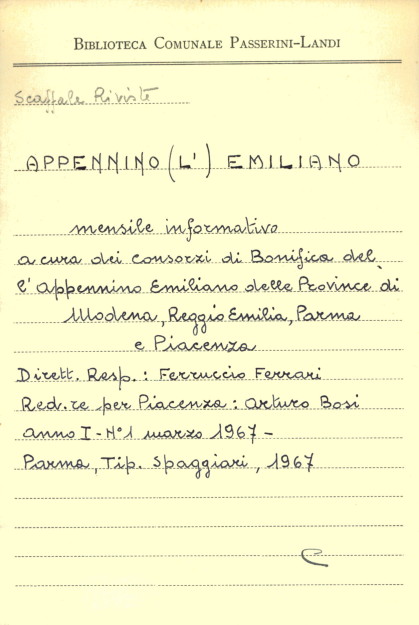 BIBLIOTECA COMUNALE PASSERINI-LANDI
Scaffale Riviste
APPENNINO (L') EMILIANO
mensile informativo
a cura dei consorzi di Bonifica del
l'Appennino Emiliano delle Province di
Modena, Reggio Emilia, Parma
e Piacenza
Dirett. Resp.: Ferruccio Ferrari
Red.re per Piacenza: Arturo Bosi
anno I - N°1 marzo 1967 -
Parma, Tip. Spaggiari, 1967
C